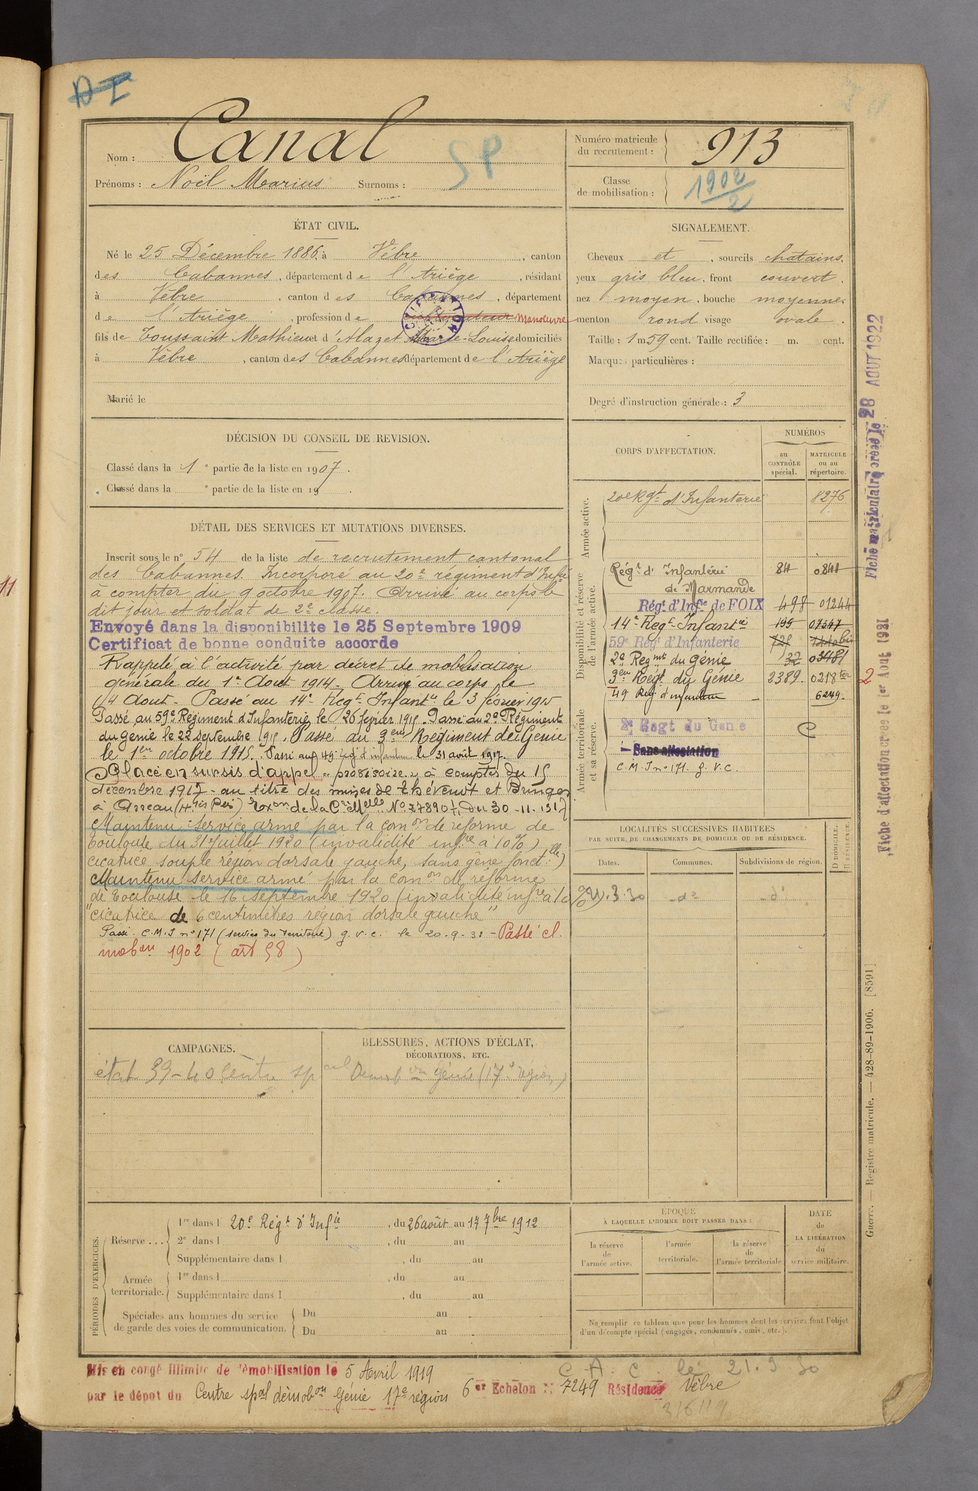 Nom : Canal
SP
Prénoms : Noël Marius Surnoms :
Numéro matricule du recrutement : 913
Classe de mobilisation : 1902/2
ÉTAT CIVIL.
Né le 25 Décembre 1886, à Vèbre, canton
des Cabannes, département de l'Ariège, résidant
à Vèbre, canton des Cabannes, département
de l'Ariège, profession de manoeuvre
fils de Toussaint Mathieu et d'Alazet Marie-Louise domiciliés
à Vèbre, canton des Cabannes département de l'Ariège
Marié le
SIGNALEMENT.
Cheveux et, sourcils châtains,
yeux gris bleu, front couvert,
nez moyen, bouche moyenne
menton rond visage ovale.
Taille : 1 m 59 cent. Taille rectifiée : m. cent.
Marques particulières :
Degré d'instruction générale : 3
DÉCISION DU CONSEIL DE REVISION.
Classé dans la 1e partie de la liste en 1907.
Classé dans la e partie de la liste en 19 .
DÉTAIL DES SERVICES ET MUTATIONS DIVERSES.
Inscrit sous le n° 54 de la liste de recrutement cantonal
des Cabannes. Incorporé au 20e régiment d'Infie
à compter du 9 octobre 1907. Arrivé au corps le
dit jour et soldat de 2e classe.
Envoyé dans la disponibilite le 25 Septembre 1909
Certificat de bonne conduite accorde
Rappelé à l'activité par décret de mobilisation
générale du 1er Août 1914. Arrivé au corps le
4 Aout. Passé au 14e Regt Infantie le 3 février 1915
Passé au 59e Régiment d'Infanterie le 26 février 1915. Passé au 2e Régiment
du génie le 22 septembre 1915. Passé au 3eme Régiment de Génie
le 1er octobre 1915. Passé au 49e Reg d'infanterie le 31 août 1917.
Placé en sursis d'appel provisoire à compter du 15
décembre 1917 au titre des mines de Thévenot et Bringon
à Orreau (Htes Prs) du 30-11-1917
Maintenu service armé par la comon de réforme de
Toulouse du 31 Juillet 1920 (invalidité infre à 10%)
cicatrice souple région dorsale gauche, sans gêne fonctlle)
Maintenu service armé par la comon de réforme
de Toulouse le 16 septembre 1920 (invalidité infre à 10%)
"cicatrice de 6 centimètres région dorsale gauche"
Passé C.M.I n° 171 (service du territoire) g.v.c. le 20.9.38 - Passé cl.
mobon 1902 (art 58)
CORPS D'AFFECTATION.
NUMÉROS
au CONTRÔLE spécial.
MATRICULE ou au répertoire.
Armée active.
20e Rgt d'Infanterie 8276
Disponibilité et réserve de l'armée active.
Régt d'Infanterie de Marmande 84 0841
Régt d'Infie de FOIX 498 01244
14e Regt Infantie 195 07847
59e Reg d'Infanterie
2e Regmt du génie 32 03481
3em Régt du Génie 2389
49 Reg d'infanterie 6249
Armée territoriale et sa réserve.
2e Regt du Genie
Sans affectation
C.M.I n° 171. g.v.c.
C
LOCALITÉS SUCCESSIVES HABITÉES
PAR SUITE DE CHANGEMENTS DE DOMICILE OU DE RÉSIDENCE.
Dates. Communes. Subdivisions de région. D DOMICILE. R RÉSIDENCE.
21.3.30
CAMPAGNES.
BLESSURES, ACTIONS D'ÉCLAT,
DÉCORATIONS, ETC.
état 39-40 Centre spal Démobon génie (17e région)
PÉRIODES D'EXERCICES.
Réserve....
1re dans l 20e Régt d'Infie, du 26 août au 17 7bre 1912
2e dans l , du au
Supplémentaire dans l , du au
Armée territoriale.
1re dans l , du au
Supplémentaire dans l , du au
Spéciales aux hommes du service
de garde des voies de communication.
Du au
Du au
ÉPOQUE
À LAQUELLE L'HOMME DOIT PASSER DANS :
la réserve de l'armée active.
l'armée territoriale.
la réserve de l'armée territoriale
DATE de LA LIBÉRATION du service militaire.
Ne remplir ce tableau que pour les hommes dont les services font l'objet
d'un décompte spécial (engagés, condamnés, omis, etc.).
Mis en congé illimité de démobilisation le 5 Avril 1919
par le dépôt du Centre spal démobon Génie 17e région 6em Echelon N° 7249 Résidence Vèbre
C A C le 21.3 30
Fiche matriculaire créée le 28 AOUT 1922
Fiche d'affectation créée le 1er Août 1931
2
Guerre. — Registre matricule. — 428-89-1906. [8591]